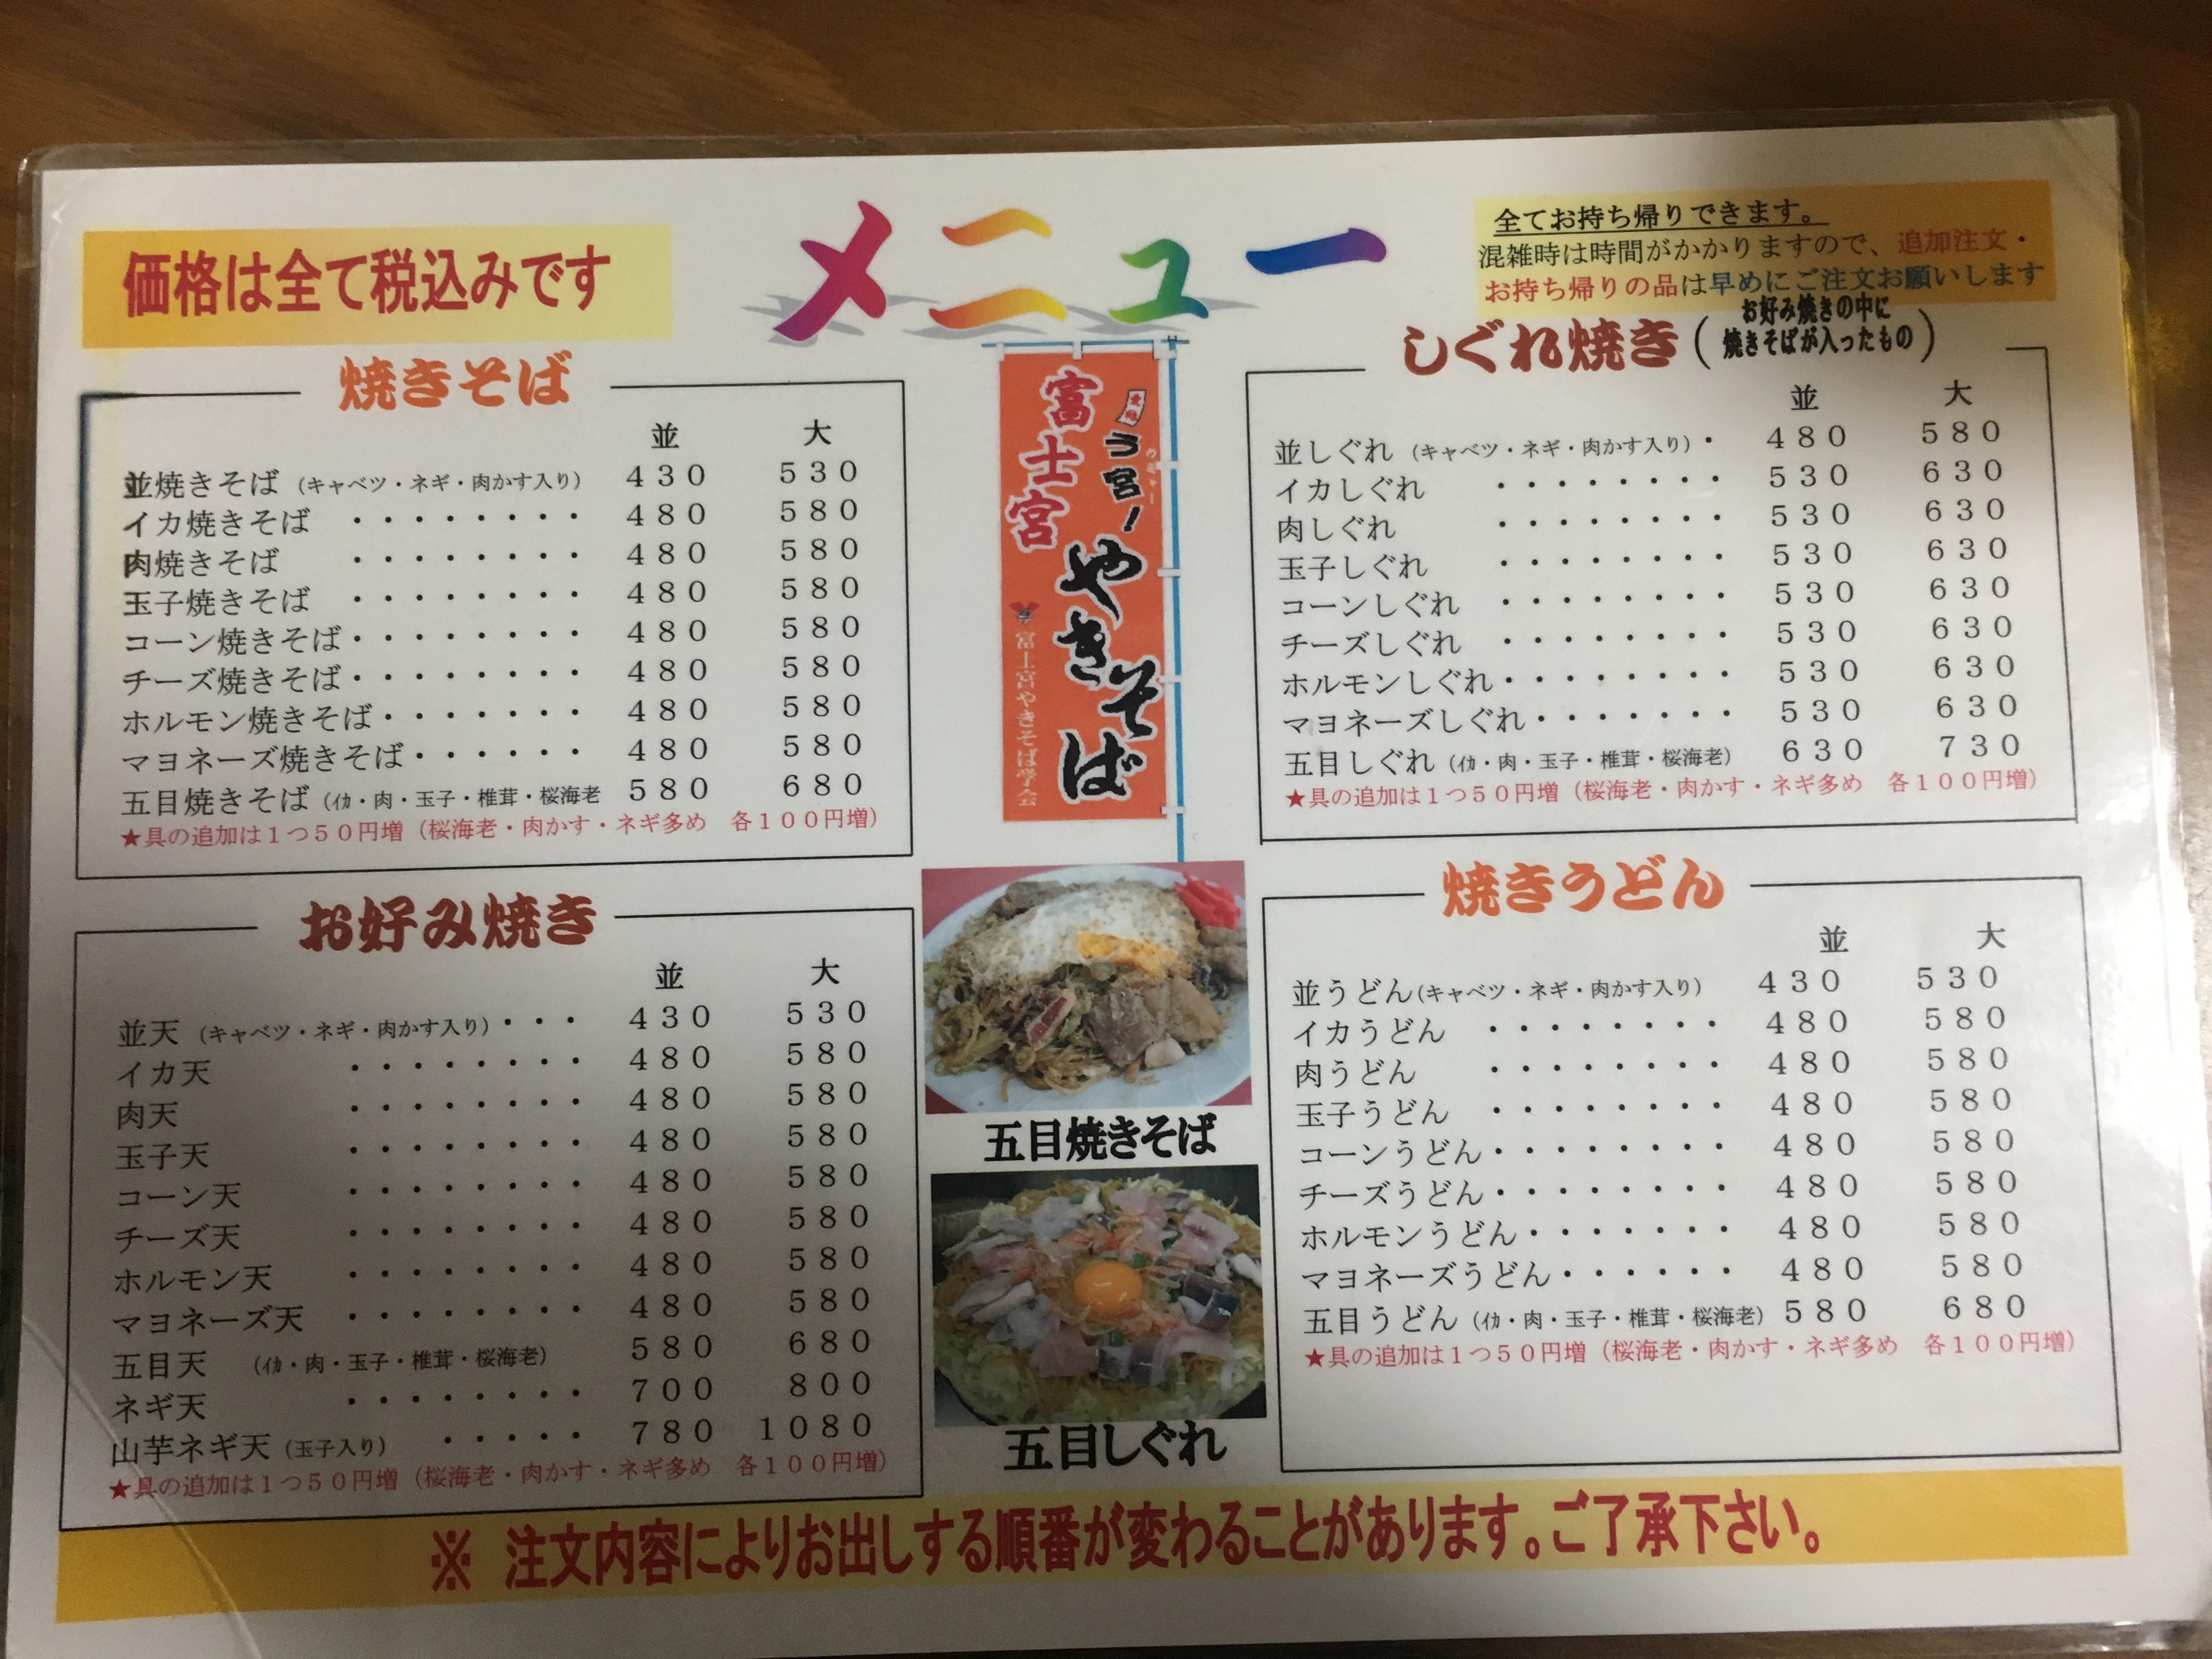 メニュー
価格は全て税込みです
全てお持ち帰りできます。
混雑時は時間がかかりますので、追加注文・
お持ち帰りの品は早めにご注文お願いします
焼きそば
並 大
並焼きそば (キャベツ・ネギ・肉かす入り) 430 530
イカ焼きそば ・・・・・・・・ 480 580
肉焼きそば ・・・・・・・・ 480 580
玉子焼きそば ・・・・・・・・ 480 580
コーン焼きそば・・・・・・・・ 480 580
チーズ焼きそば・・・・・・・・ 480 580
ホルモン焼きそば・・・・・・・ 480 580
マヨネーズ焼きそば・・・・・・ 480 580
五目焼きそば (イカ・肉・玉子・椎茸・桜海老 580 680
★具の追加は1つ50円増 (桜海老・肉かす・ネギ多め 各100円増)
富士宮
う宮!
やきそば
富士宮やきそば学会
しぐれ焼き (お好み焼きの中に
焼きそばが入ったもの)
並 大
並しぐれ (キャベツ・ネギ・肉かす入り)・ 480 580
イカしぐれ ・・・・・・・・ 530 630
肉しぐれ ・・・・・・・・ 530 630
玉子しぐれ ・・・・・・・・ 530 630
コーンしぐれ ・・・・・・・・ 530 630
チーズしぐれ ・・・・・・・・ 530 630
ホルモンしぐれ・・・・・・・・ 530 630
マヨネーズしぐれ・・・・・・・ 530 630
五目しぐれ (イカ・肉・玉子・椎茸・桜海老) 630 730
★具の追加は1つ50円増 (桜海老・肉かす・ネギ多め 各100円増)
お好み焼き
並 大
並天 (キャベツ・ネギ・肉かす入り)・・・ 430 530
イカ天 ・・・・・・・・ 480 580
肉天 ・・・・・・・・ 480 580
玉子天 ・・・・・・・・ 480 580
コーン天 ・・・・・・・・ 480 580
チーズ天 ・・・・・・・・ 480 580
ホルモン天 ・・・・・・・・ 480 580
マヨネーズ天 ・・・・・・・・ 480 580
五目天 (イカ・肉・玉子・椎茸・桜海老) 580 680
ネギ天 ・・・・・・・・ 700 800
山芋ネギ天 (玉子入り) ・・・・・ 780 1080
★具の追加は1つ50円増 (桜海老・肉かす・ネギ多め 各100円増)
五目焼きそば
五目しぐれ
焼きうどん
並 大
並うどん(キャベツ・ネギ・肉かす入り) 430 530
イカうどん ・・・・・・・・ 480 580
肉うどん ・・・・・・・・ 480 580
玉子うどん ・・・・・・・・ 480 580
コーンうどん・・・・・・・・ 480 580
チーズうどん・・・・・・・・ 480 580
ホルモンうどん・・・・・・・ 480 580
マヨネーズうどん・・・・・・ 480 580
五目うどん (イカ・肉・玉子・椎茸・桜海老) 580 680
★具の追加は1つ50円増 (桜海老・肉かす・ネギ多め 各100円増)
※ 注文内容によりお出しする順番が変わることがあります。ご了承下さい。